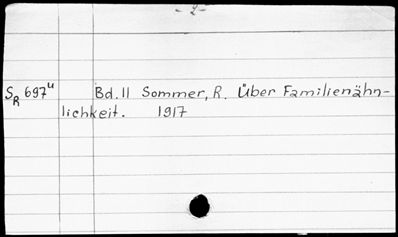 - 2 -
S_R 697^u Bd. II Sommer, R. Über Familienähn-
lichkeit. 1917